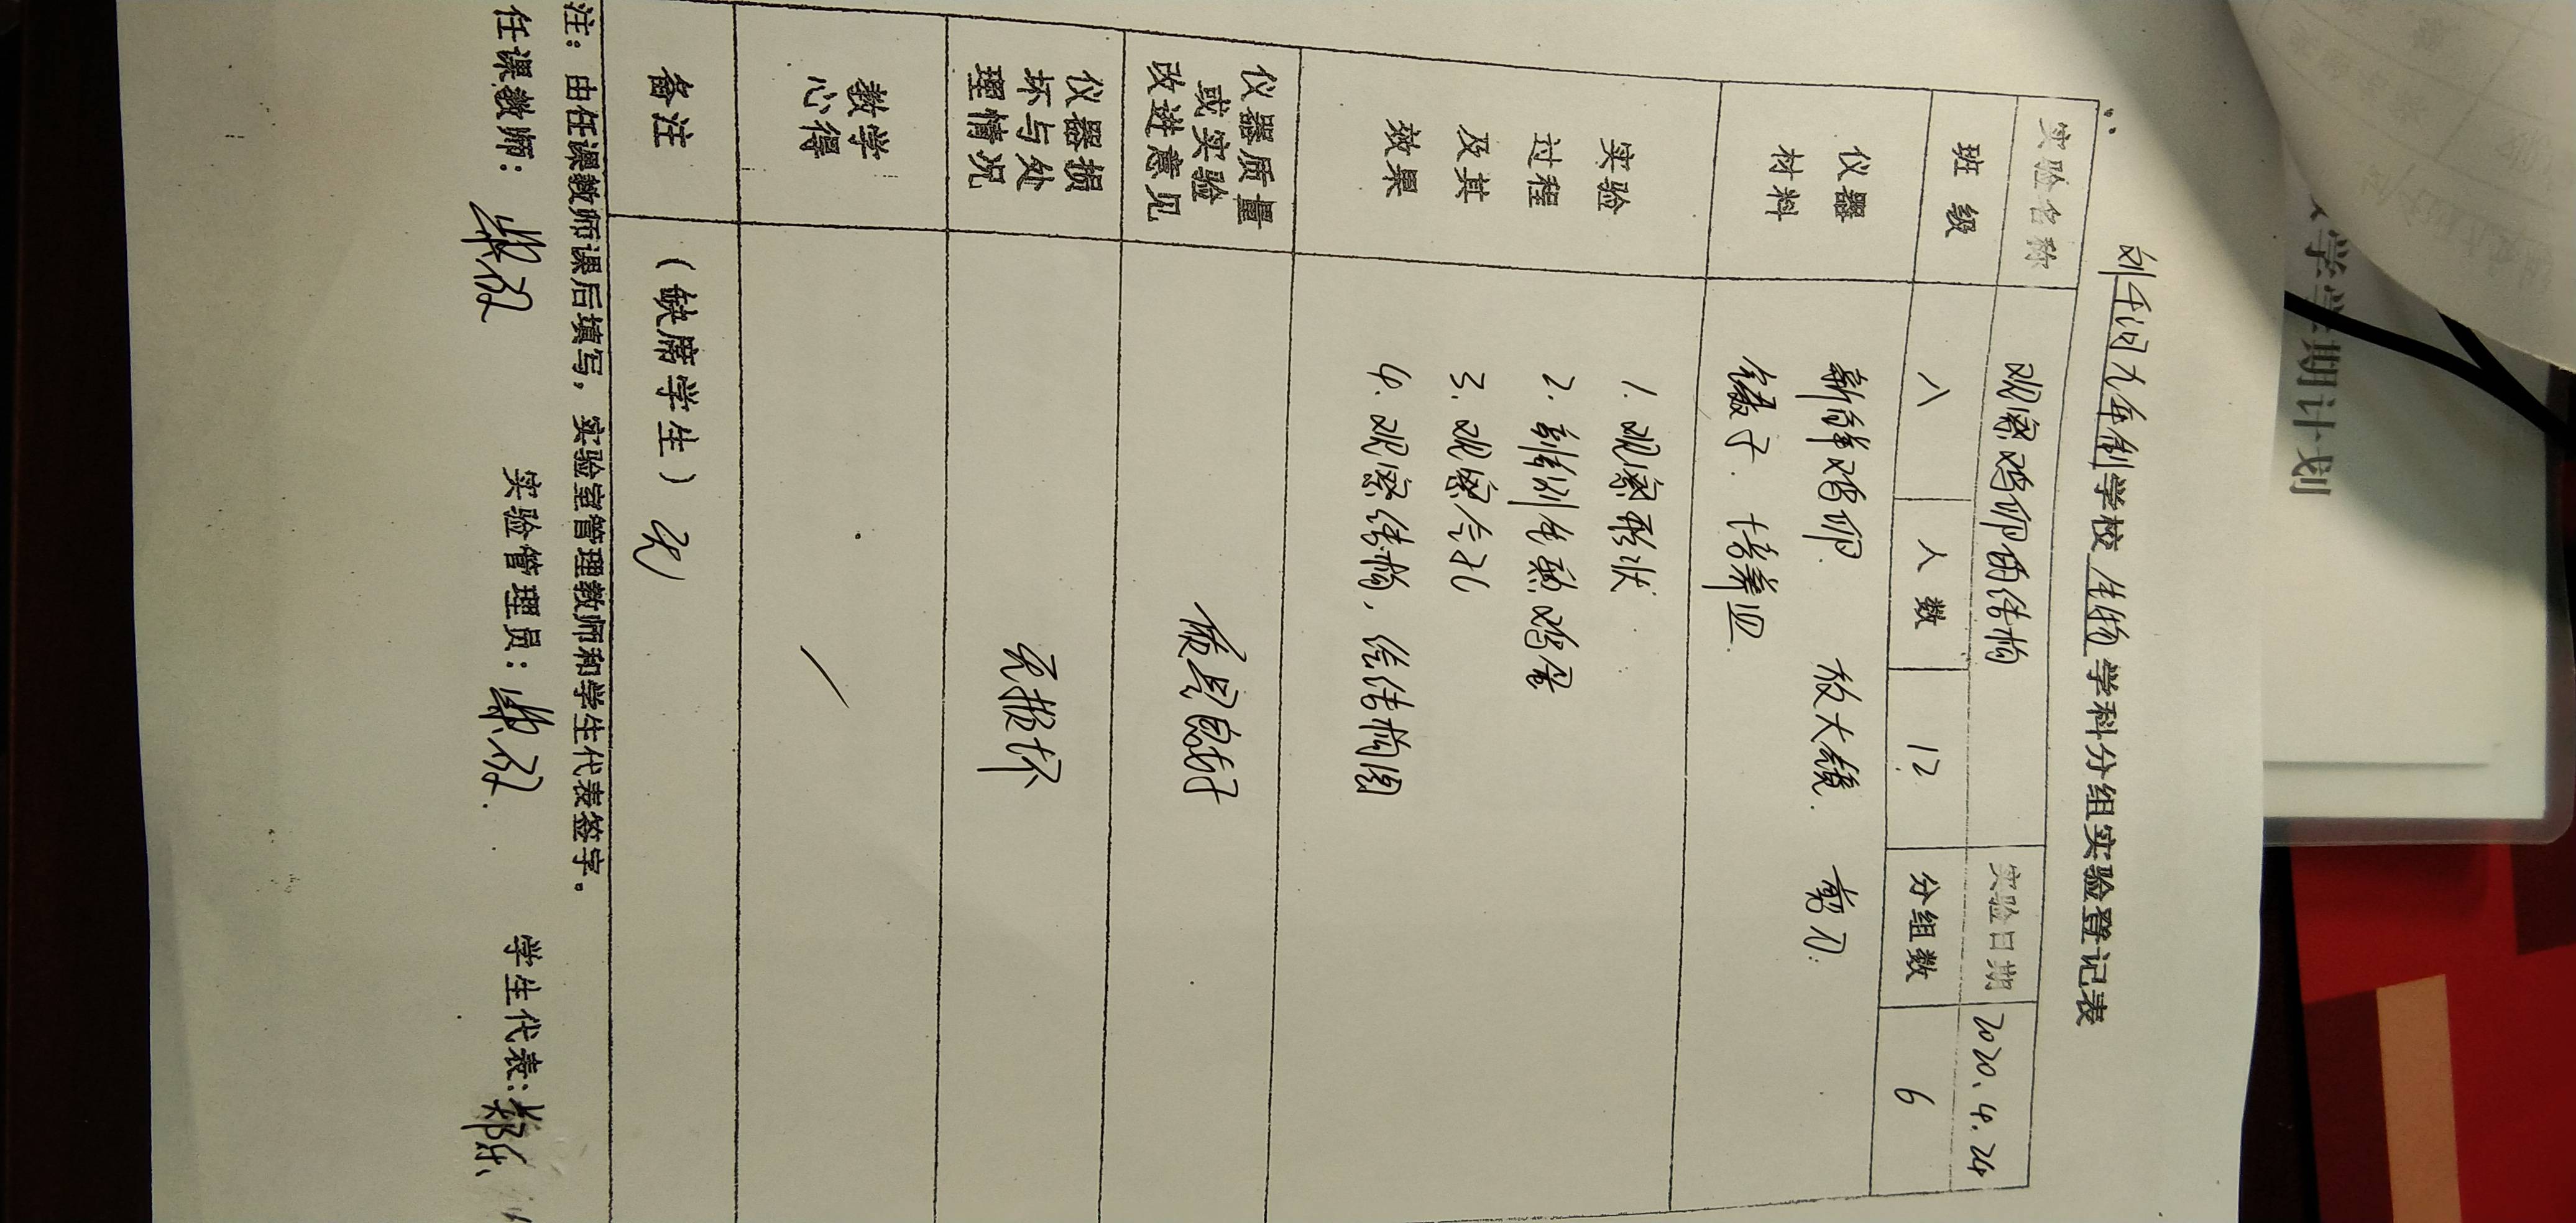 九年制学校 生物 学科分组实验登记表
实验名称 观察鸡卵的结构 实验日期 2020.4.24
班级 八 人数 12 分组数 6
仪器材料 新鲜鸡卵 放大镜 剪刀
镊子 培养皿
实验过程及其效果
1. 观察形状
2. 剖别生熟鸡蛋
3. 观察气孔
4. 观察结构,绘结构图
仪器质量或实验改进意见 质量良好
仪器损坏与处理情况 无损坏
教学心得 /
备注 (缺席学生) 无
注:由任课教师课后填写,实验室管理教师和学生代表签字。
任课教师: 实验管理员: 学生代表:
学学期计划